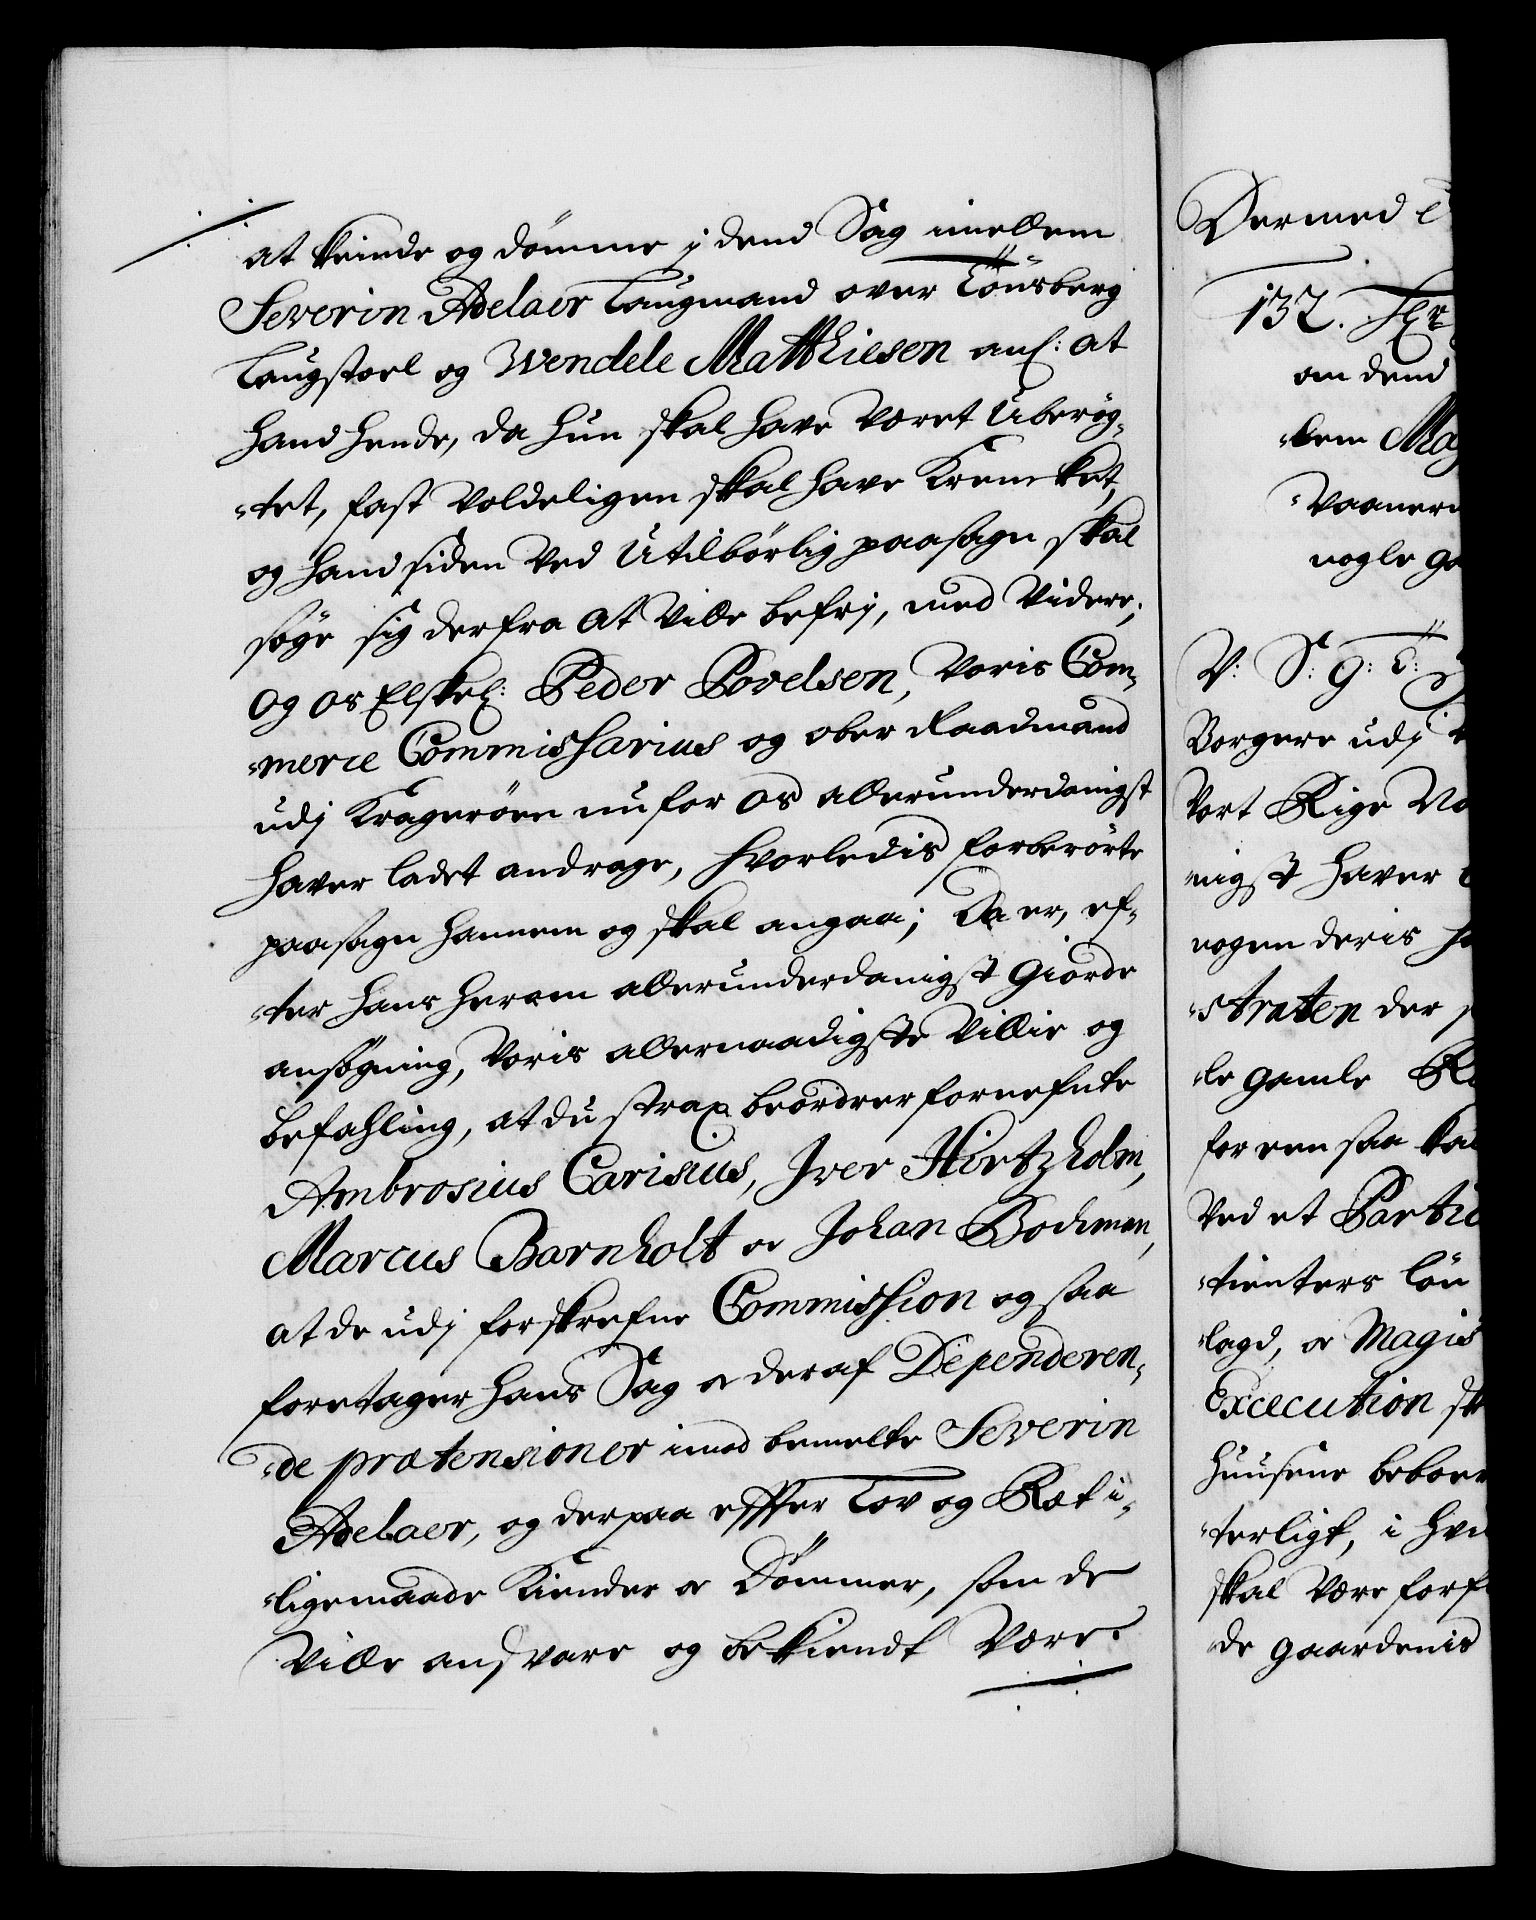 at kiende og dömme j dend Sag imellem
Severin Adelaer Laugmand over Tönsberg
Laugstoel og Wendele Matthiesen anl: at
hand hende, da hun skal have været Uberög-
-tet, fast Voldeligen skal have Krencket,
og hand siden ved Utilbörlig paasagn skal
söge sig derfra at ville befrj, med videre;
Og os Elskel: Peder Povelsen, Voris Com-
-merce Commissarius og ober Raadmand
udj Krageröen nu for os allerunderdanigst
haver ladet andrage, hvorledis forberörte
paasagn hannem og skal angaa; Da er, ef-
-ter hans herom allerunderdanigst giorde
ansögning, Voris allernaadigste Villie og
befahling, at du strax beordrer fornefnte
Ambrosius Carisius, Iver Hirtzholm,
Marcus Barnholt oc Johan Bochman,
at de udj forskrefne Commission og saa
foretager hans Sag oc deraf Dependeren-
-de prætensioner imod bemelte Severin
Adelaer, og derpaa effter Lov og Ræt i-
-ligemaade Kiender oc Dömmer, som de
Ville andsvare og bekiendt Være.
Dermed
132.
om dend
-lem
nogle
V: S: G: T:
Borgere udj
Vort Rige
-nigst haver
nogen deris
-straten der
-le gamle
for een saa
Ved et
-tienters
-lagd, oc
Execution
huusene
-terligt, i
skal Være
-de gaardenis